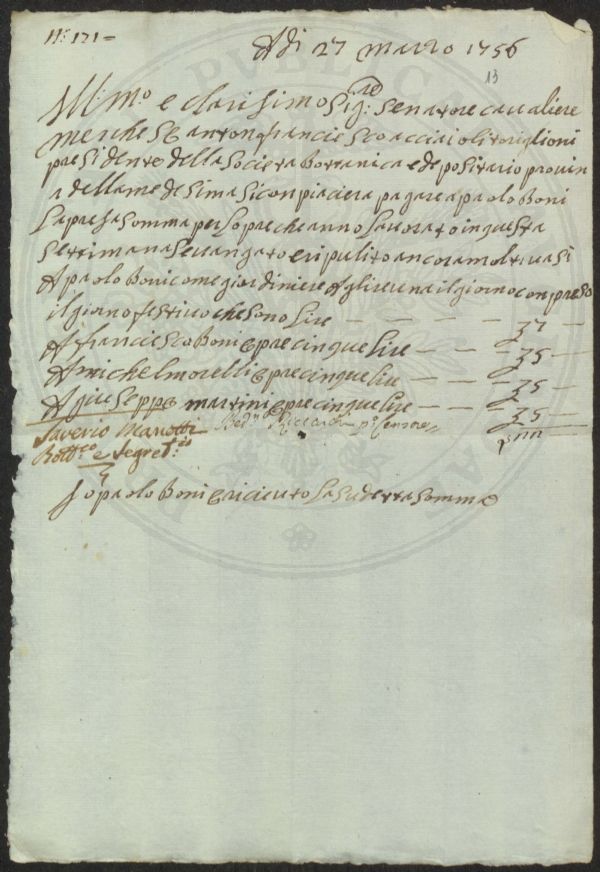 N: 171=
Adi 27 marzo 1756
13
Ill:mo e clarisimo Sig:re Senatore cavaliere
merchese antonfrancie sco acciaioli toriglioni
presidente della Societa bottanica e depositario provin
a della medesima Si conpiacera pagare a paolo Boni
La presa Somma per L opre che anno Lavorato in questa
Settimana Se vangato e ripulito ancora molti vasi
A paolo Boni come giardiniere A
il giorno festivo che Sono Lire — — — 37 —
A francie Sco Boni opre cinque Lire — — — 35 —
A michel morelli opre cinque Lire — — — 35 —
A giuSeppe martini opre cinque Lire — — — 35 —
Saverio Manetti
Bott:co e Segret:rio
Io paolo Boni o riceuto La Sudetta Somma
PUBLICA